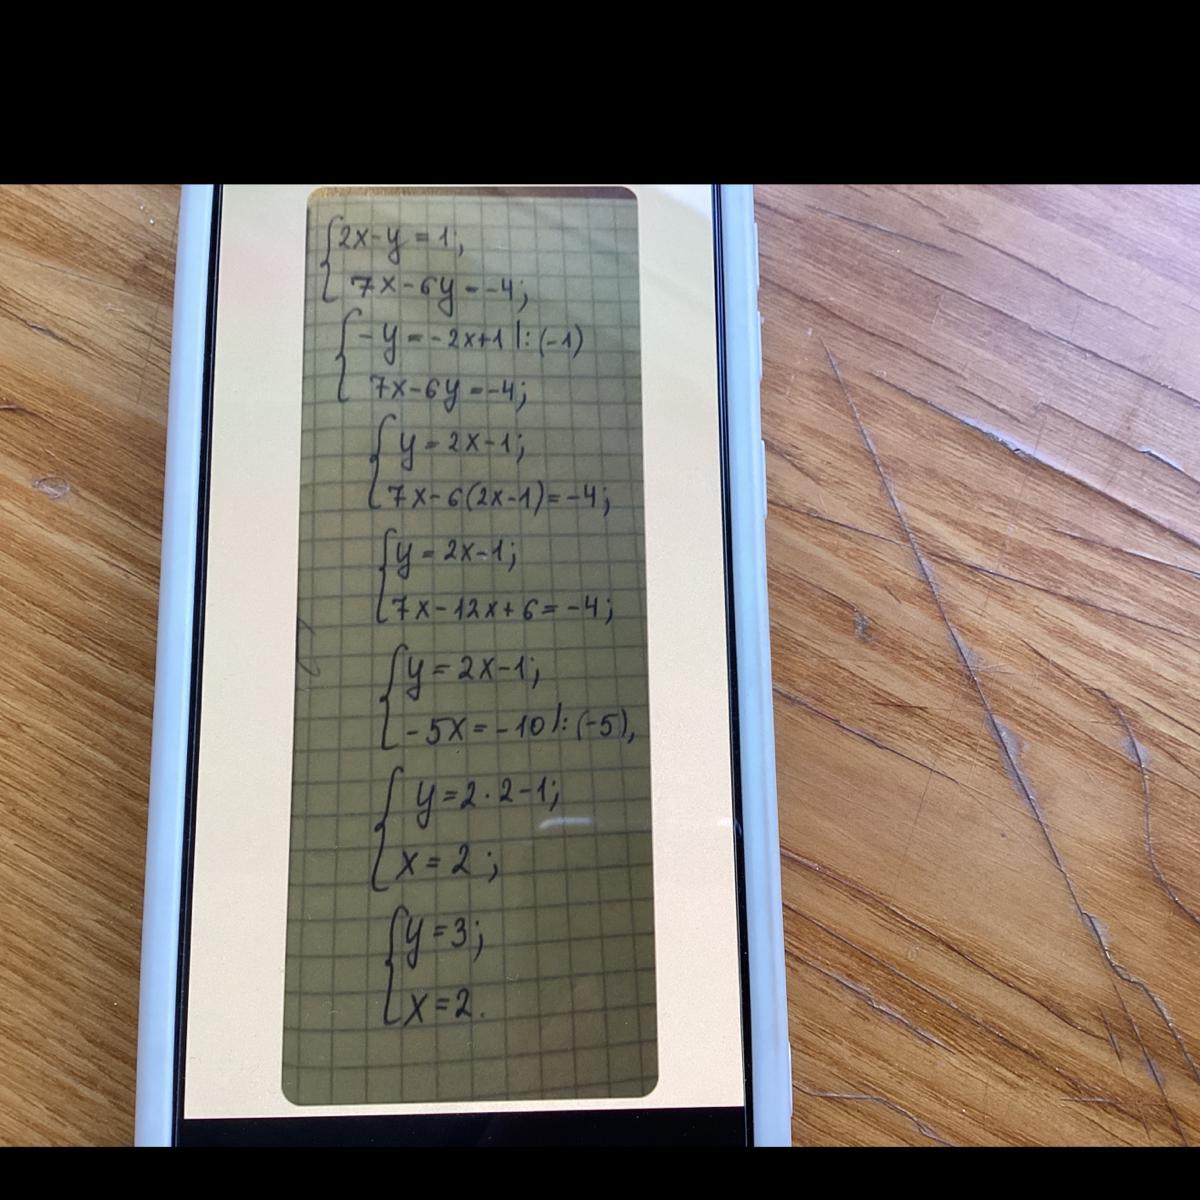 2x-y=1;
7x-6y=-4;
-y=-2x+1|:(-1)
7x-6y=-4;
y=2x-1;
7x-6(2x-1)=-4;
y=2x-1;
7x-12x+6=-4;
y=2x-1;
-5x=-10|:(-5),
y=2·2-1;
x=2;
y=3;
x=2.